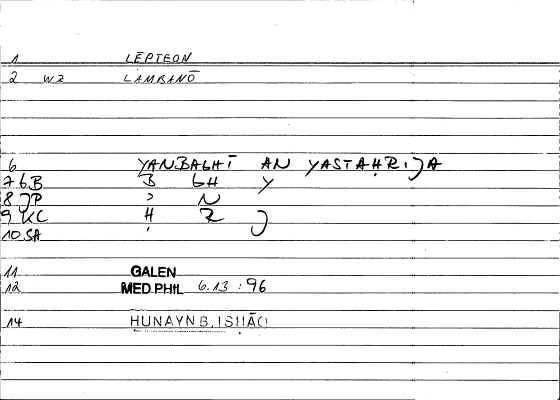 1 LĒPTEON
2 WZ LAMBANŌ
6 YANBAGHĪ AN YASTAḪRIJA
7 GB B GH Y
8 JP ' N
9 KC H R J
10 SA
11 GALEN
12 MED PHIL 6.13 : 96
14 HUNAYN B. ISḤĀQ